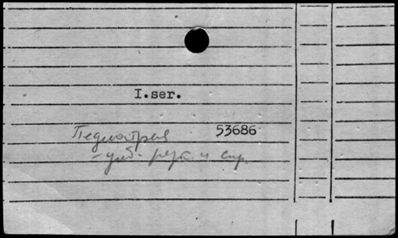 I.ser.
Педиатрия 53686
- учеб. рук. и спр.